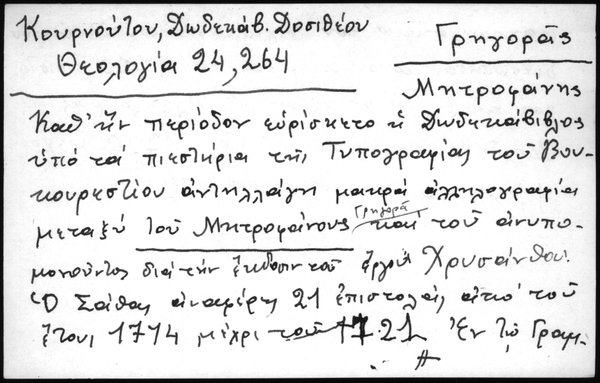 Κουρνούτου, Δωδεκάβ. Δοσιθέου
Θεολογία 24, 264
Γρηγορᾶς
Μητροφάνης
Καθ' ἣν περίοδον εὑρίσκετο ἡ Δωδεκάβιβλος
ὑπό τά πιεστήρια τῆς Τυπογραφίας τοῦ Βου-
κουρεστίου ἀντηλλάγη μακρά ἀλληλογραφία
μεταξύ τοῦ Μητροφάνους Γρηγορᾶ καί τοῦ ἀνυπο-
μονοῦντος διά τήν ἔκδοσιν τοῦ ἔργου Χρυσάνθου.
Ὁ Σάθας ἀναφέρει 21 ἐπιστολάς ἀπό τοῦ
ἔτους 1714 μέχρι τοῦ 1721. Ἐν τῷ Γραμ-